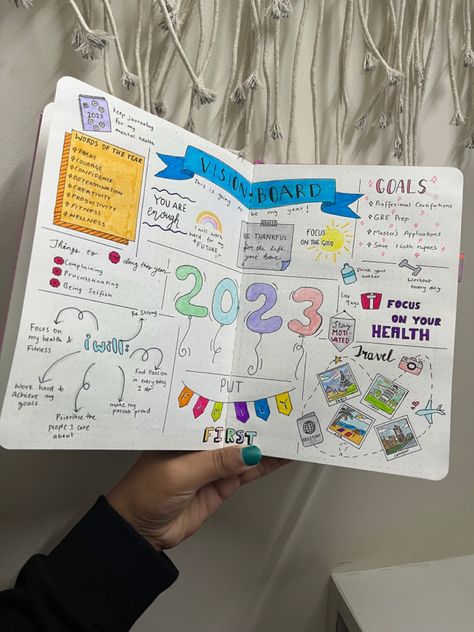 2023
keep journaling
for my
mental health
WORDS OF THE YEAR
FOCUS
COURAGE
CONFIDENCE
DETERMINATION
CREATIVITY
PRODUCTIVITY
FITNESS
WELLNESS
VISION BOARD
This is going to be my year!
YOU ARE
enough
I will work
hard for my
FUTURE
BE THANKFUL
for the life
you have
FOCUS
ON THE GOOD
GOALS
Proffesional Certifications
GRE Prep
Master's Applications
Save 1 lakh rupees
Things to
this year:
Complaining
Procrastinating
Being Selfish
2023
Drink your
water
Workout
every day
Give
STAY
MOTI
VATED
FOCUS
ON YOUR
HEALTH
i will:
Be Strong
Focus on
my health &
Fitness
Work hard to
achieve my
goals
Prioritize the
people I care
about
make my
parents proud
Find Passion
in everyday
I do
PUT
FAMILY
FIRST
Travel
PASSPORT